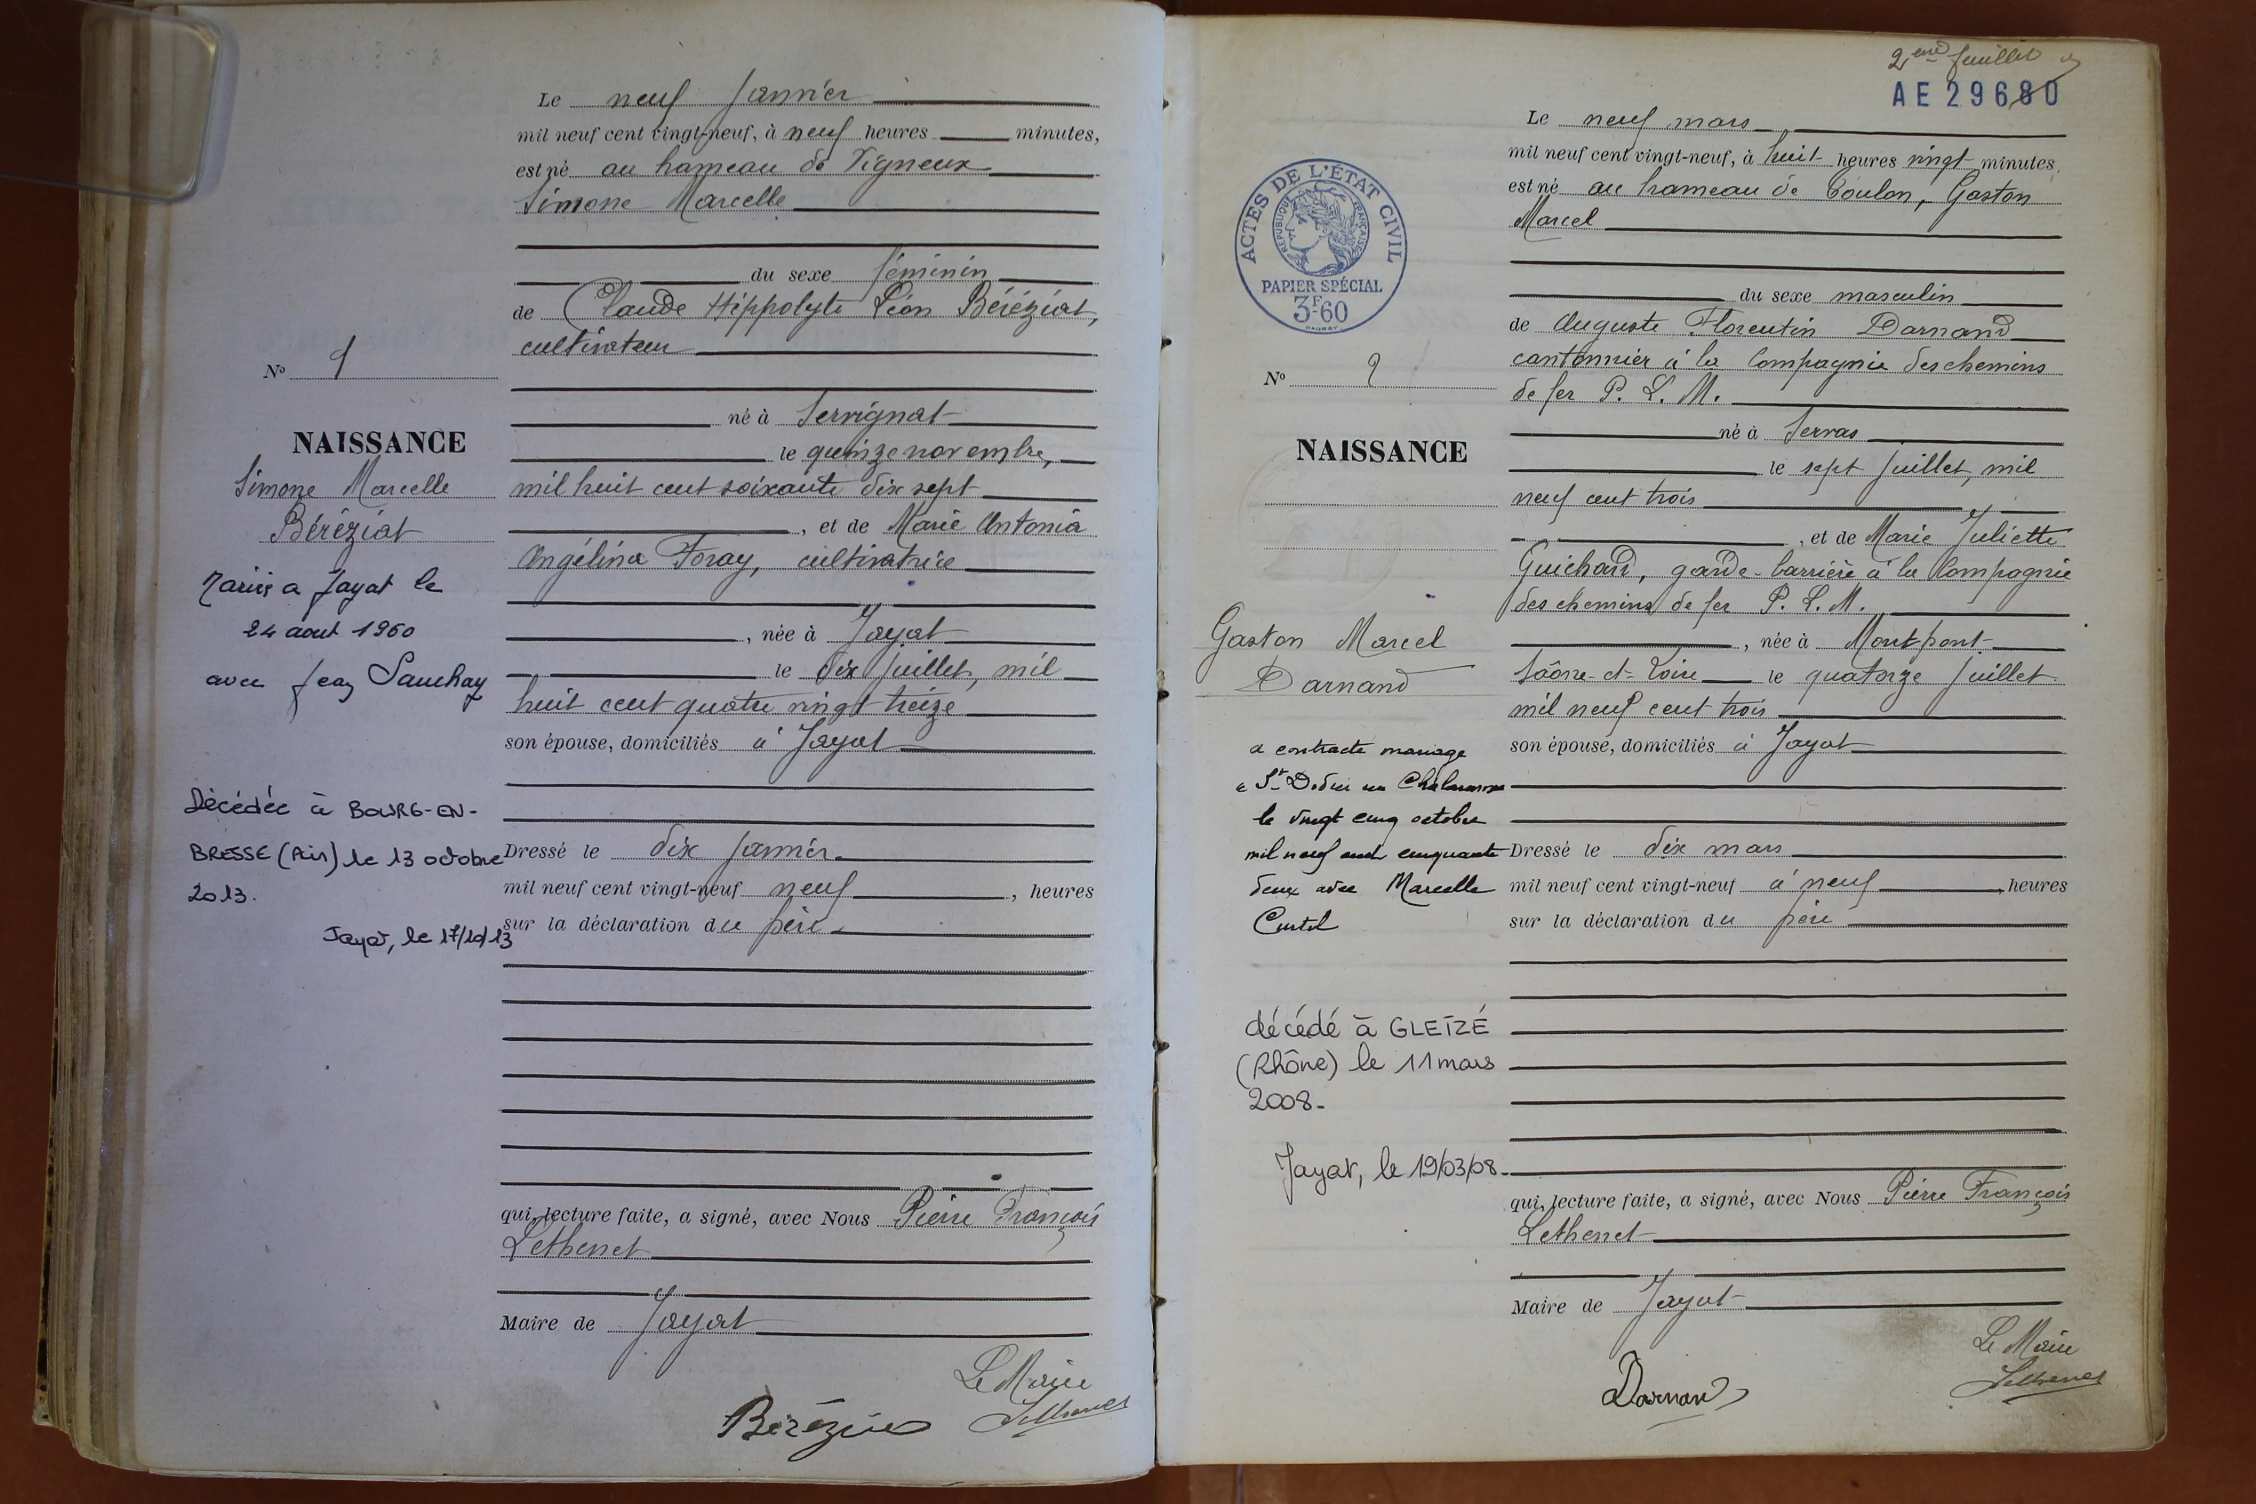 Le neuf Janvier
mil neuf cent vingt-neuf, à neuf heures minutes,
est né au hameau de Vigneux
Simone Marcelle
du sexe féminin
de Claude Hippolyte Léon Béréziat,
cultivateur
né à Servignat
le quinze novembre,
mil huit cent soixante dix sept
, et de Marie Antonia
Angélina Foray, cultivatrice
, née à Jayat
le dix Juillet, mil
huit cent quatre vingt treize
son épouse, domiciliés à Jayat
Dressé le dix Janvier
mil neuf cent vingt-neuf neuf , heures
sur la déclaration du père
qui, lecture faite, a signé, avec Nous Pierre François
Lethenet
Maire de Jayat
Le Maire
Lethenet
Béréziat
No 1
NAISSANCE
Simone Marcelle
Béréziat
Mariée a Jayat le
24 aout 1960
avec Jean Sauchay
Décédée à BOURG-EN-
BRESSE (Ain) le 13 octobre
2013.
Jayat, le 17/10/13
2eme feuillet
AE 29680
Le neuf mars
mil neuf cent vingt-neuf, à huit heures vingt minutes
est né au hameau de Coulon, Gaston
Marcel
du sexe masculin
de Auguste Florentin Darnand
cantonnier à la Compagnie des chemins
de fer P. L. M.
né à Servas
le sept Juillet, mil
neuf cent trois
, et de Marie Juliette
Guichard, garde-barrière à la Compagnie
des chemins de fer P. L. M.
, née à Montpont
Saône-et-Loire le quatorze Juillet
mil neuf cent trois
son épouse, domiciliés à Jayat
Dressé le dix mars
mil neuf cent vingt-neuf à neuf , heures
sur la déclaration du père
qui, lecture faite, a signé, avec Nous Pierre François
Lethenet
Maire de Jayat
Le Maire
Lethenet
Darnand
ACTES DE L'ÉTAT CIVIL
RÉPUBLIQUE FRANÇAISE
PAPIER SPÉCIAL
3F60
No 2
NAISSANCE
Gaston Marcel
Darnand
a contracté mariage
à St Didier sur Chalaronne
le vingt cinq octobre
mil neuf cent cinquante
deux avec Marcelle
décédé à GLEIZÉ
(Rhône) le 11 mars
2008-
Jayat, le 19/03/08-